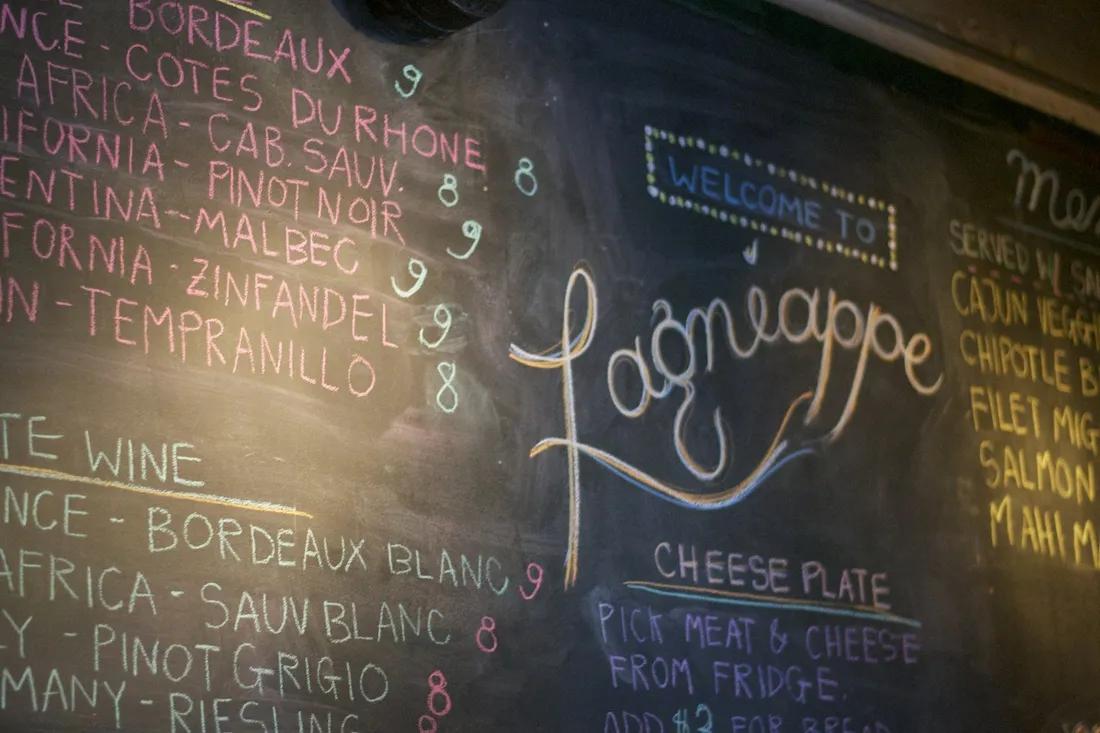 BORDEAUX 9
NCE - COTES DU RHONE 8
AFRICA - CAB. SAUV. 8
IFORNIA - PINOT NOIR 9
ENTINA - MALBEC 9
FORNIA - ZINFANDEL 9
IN - TEMPRANILLO 8
TE WINE
NCE - BORDEAUX BLANC 9
AFRICA - SAUV BLANC 8
LY - PINOT GRIGIO 8
MANY - RIESLING 8
WELCOME TO
Lagneappe
CHEESE PLATE
PICK MEAT & CHEESE
FROM FRIDGE.
ADD $2 FOR BREAD
Mea
SERVED W/ SAL
CAJUN VEGGI
CHIPOTLE B
FILET MIG
SALMON
MAHI M